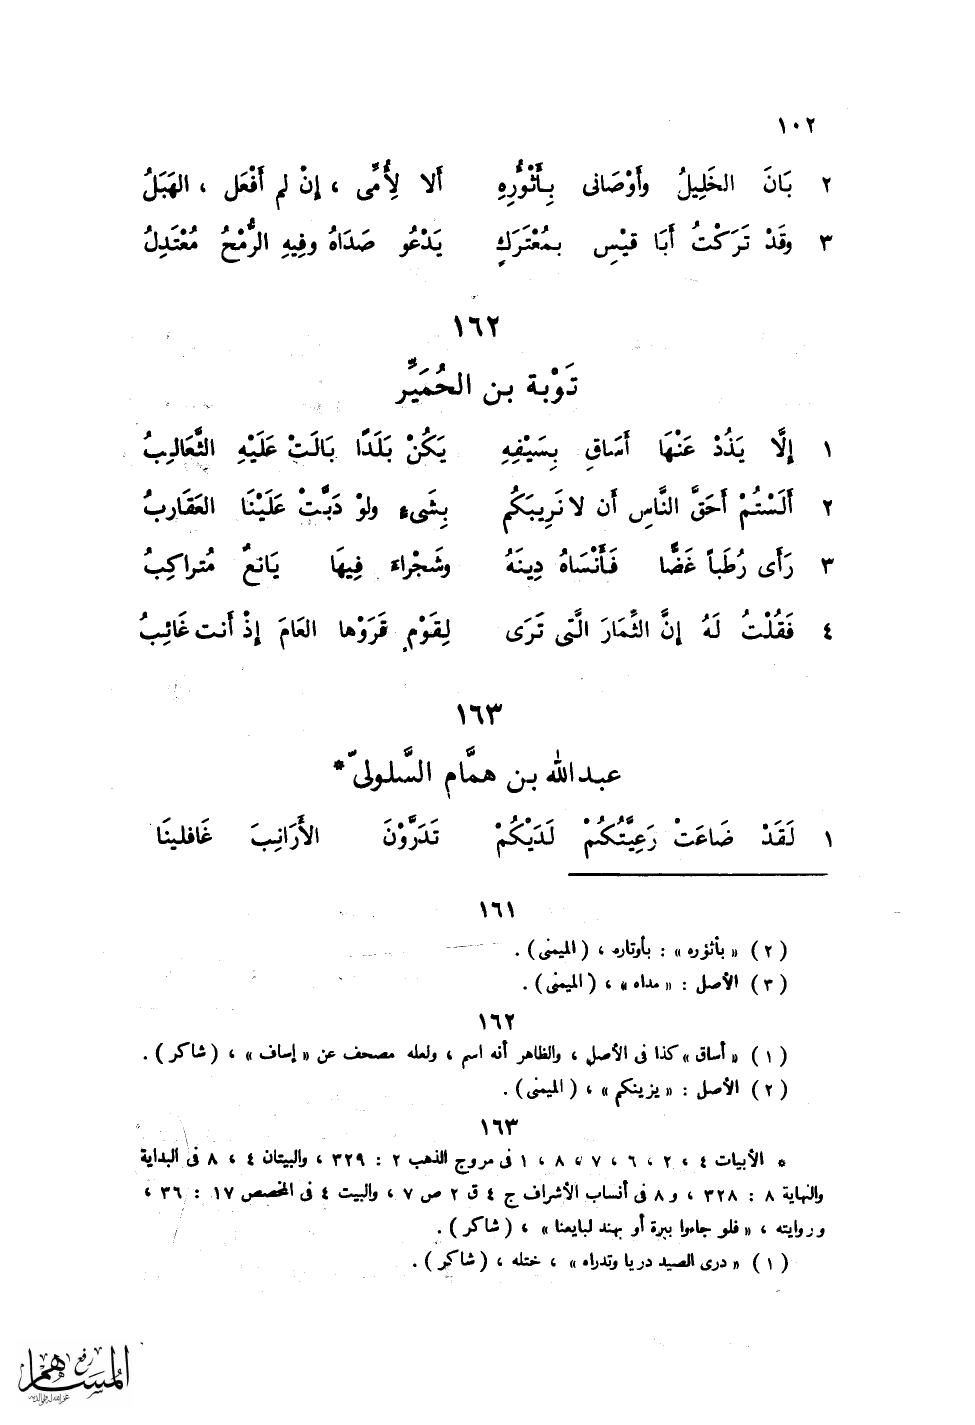 ١٠٢
٢ بَانَ الخَلِيلُ وأَوْصَانى بِأَثْوُرِهِ أَلا لِأُمِّى ، إِنْ لم أَفْعَل ، الهَبَلُ
٣ وقَدْ تَرَكْتُ أَبَا قيْسِ بمُعْتَرَكٍ يَدْعُو صَدَاهُ وفِيهِ الرُّمْحُ مُعْتَدِلُ
١٦٢
تَوْبة بن الحُمَيِّر
١ إِلَّا يَذُدْ عَنْهَا أَسَاقِ بِسَيْفِهِ يَكُنْ بَلَدًا بَالَتْ عَلَيْهِ الثَّعَالِبُ
٢ أَلَسْتُمْ أَحَقَّ النَّاسِ أَن لا نَرِيبَكُم بِشَىءٍ ولوْ دَبَّتْ عَلَيْنَا العَقَارِبُ
٣ رَأَى رُطَباً غَضًّا فَأَنْسَاهُ دِينَهُ وشَجْراءَ فِيهَا يَانعٌ مُتراكِبُ
٤ فَقُلْتُ لَهُ إِنَّ الثِّمَارَ الَّتى تَرَى لِقَوْمٍ قَرَوْها العَامَ إِذْ أَنت غَائِبُ
١٦٣
عبد الله بن همَّام السَّلولىّ *
١ لَقَدْ ضَاعَتْ رَعِيَّتُكُمْ لَدَيْكُمْ تَدَرَّوْنَ الأَرَانِبَ غَافلينَا
١٦١
( ٢ ) « بأثؤره » : بأوتاره ، ( الميمنى ) .
( ٣ ) الأصل : « مداه » ، ( الميمنى ) .
١٦٢
( ١ ) « أساق » كذا فى الأصل ، والظاهر أنه اسم ، ولعله مصحف عن « إساف » ، ( شاكر ) .
( ٢ ) الأصل : « يزينكم » ، ( الميمنى ) .
١٦٣
* الأبيات ٤ ، ٢ ، ٦ ، ٧ ، ٨ ، ١ فى مروج الذهب ٢ : ٣٢٩ ، والبيتان ٤ ، ٨ فى البداية
والنهاية ٨ : ٣٢٨ ، و ٨ فى أنساب الأشراف ج ٤ ق ٢ ص ٧ ، والبيت ٤ فى المخصص ١٧ : ٣٦ ،
وروايته ، « فلو جاءوا ببرة أو بهند لبايعنا » ، ( شاكر ) .
( ١ ) « درى الصيد دريا وتدراه » ، ختله ، ( شاكر ) .
رفع
المساهم